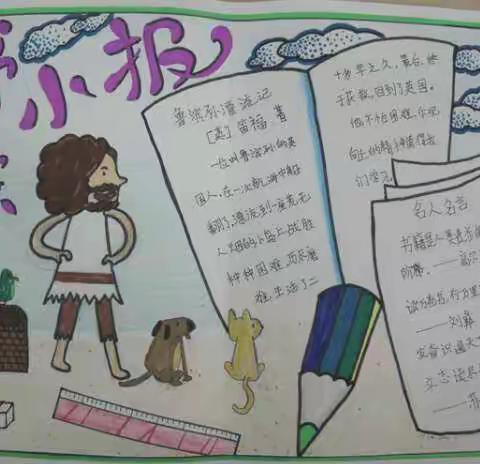 小报
鲁滨孙漂流记
[英]笛福 著
一位叫鲁滨孙的英
国人,在一次航海中船
翻了,漂流到一座荒无
人烟的小岛上,战胜
种种困难,历尽磨
难,生活了二
十多年之久,最后,终
于获救,回到了英国。
他不怕困难,乐观
向上的精神值得我
们学习。
名人名言
书籍是人类进步的
阶梯。——高尔
读万卷书,行万里
——刘彝
发奋识遍天
立志读尽
——苏